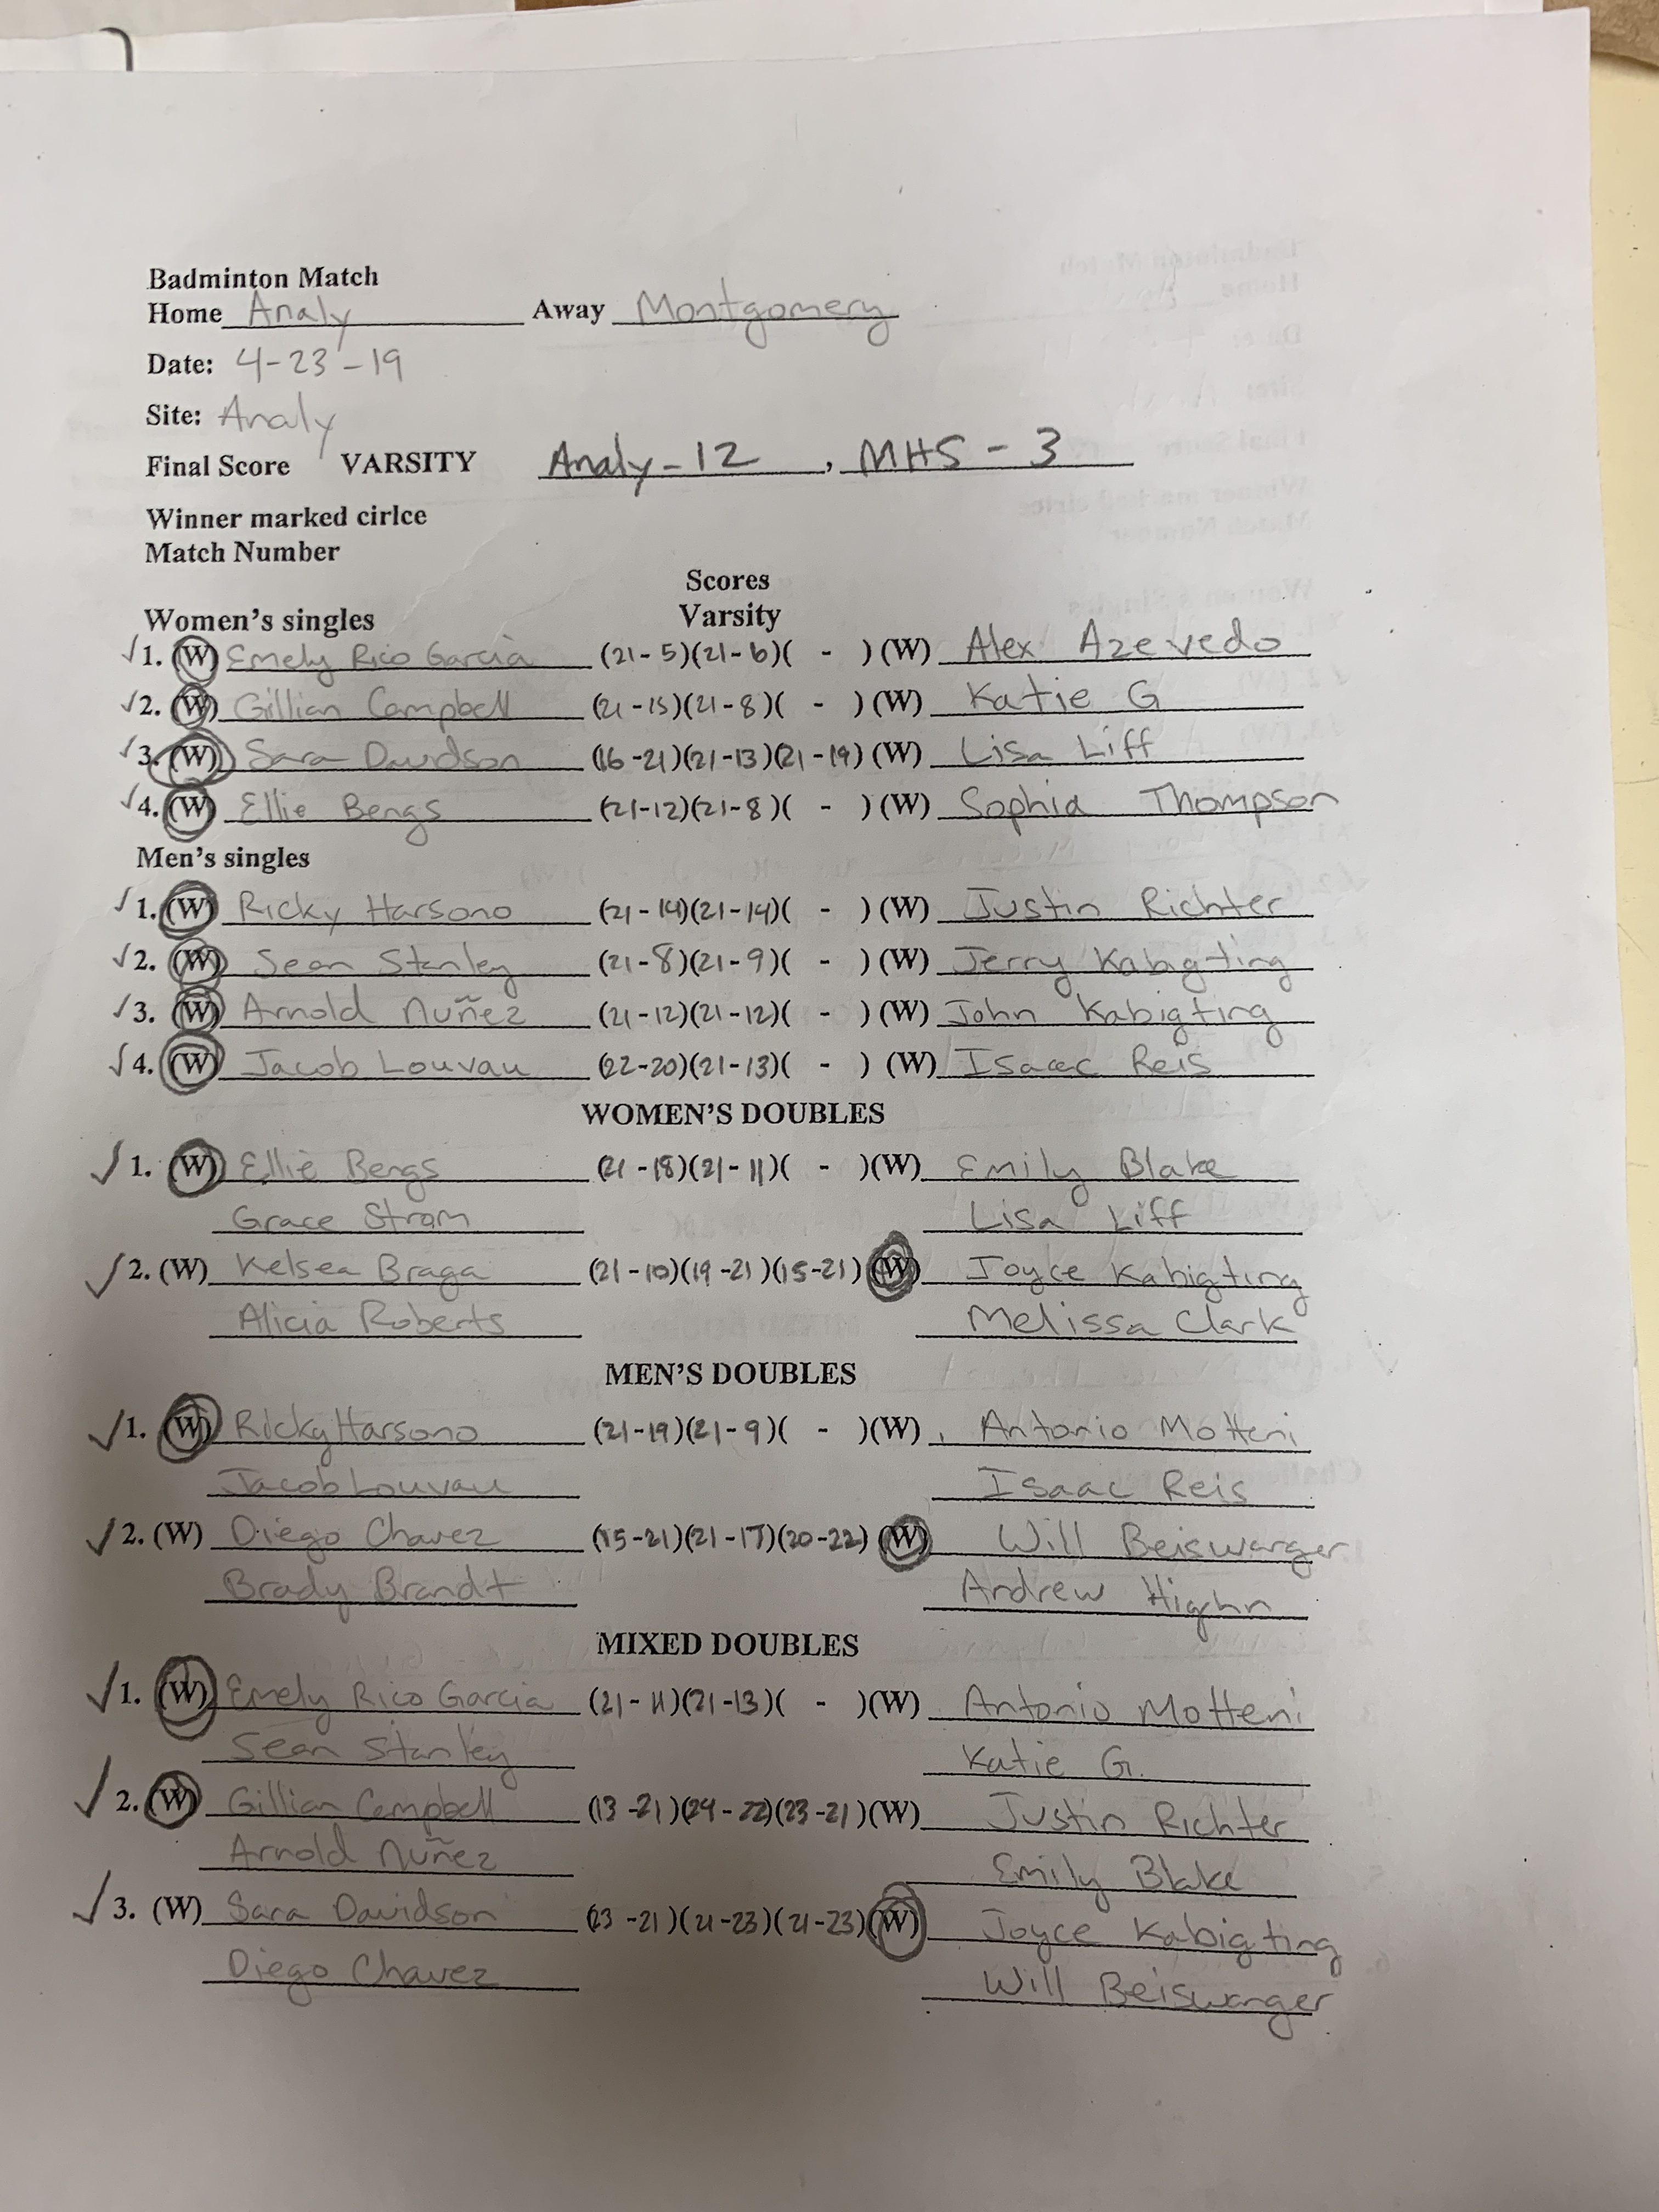 Badminton Match
Home Analy Away Montgomery
Date: 4-23-19
Site: Analy
Final Score VARSITY Analy-12 , MHS-3
Winner marked cirlce
Match Number
Scores
Women's singles Varsity
✓1. (W) Emely Rico Garcia (21-5)(21-6)( - ) (W) Alex Azevedo
✓2. (W) Gillian Campbell (21-15)(21-8)( - ) (W) Katie G
✓3. (W) Sara Davidson (16-21)(21-13)(21-19) (W) Lisa Liff
✓4. (W) Ellie Bengs (21-12)(21-8)( - ) (W) Sophia Thompson
Men's singles
✓1. (W) Ricky Harsono (21-14)(21-14)( - ) (W) Justin Richter
✓2. (W) Sean Stanley (21-8)(21-9)( - ) (W) Jerry Kabigting
✓3. (W) Arnold Nuñez (21-12)(21-12)( - ) (W) John Kabigting
✓4. (W) Jacob Louvau (22-20)(21-13)( - ) (W) Isaac Reis
WOMEN'S DOUBLES
✓1. (W) Ellie Bengs (21-18)(21-11)( - )(W) Emily Blake
Grace Strom Lisa Liff
✓2. (W) Kelsea Braga (21-10)(19-21)(15-21) (W) Joyce Kabigting
Alicia Roberts Melissa Clark
MEN'S DOUBLES
✓1. (W) Ricky Harsono (21-19)(21-9)( - )(W) Antonio Motteni
Jacob Louvau Isaac Reis
✓2. (W) Diego Chavez (15-21)(21-17)(20-22) (W) Will Beiswanger
Brady Brandt Andrew
MIXED DOUBLES
✓1. (W) Emely Rico Garcia (21-11)(21-13)( - )(W) Antonio Motteni
Sean Stanley Katie G.
✓2. (W) Gillian Campbell (13-21)(24-22)(23-21)(W) Justin Richter
Arnold Nuñez Emily Blake
✓3. (W) Sara Davidson (23-21)(21-23)(21-23)(W) Joyce Kabigting
Diego Chavez Will Beiswanger